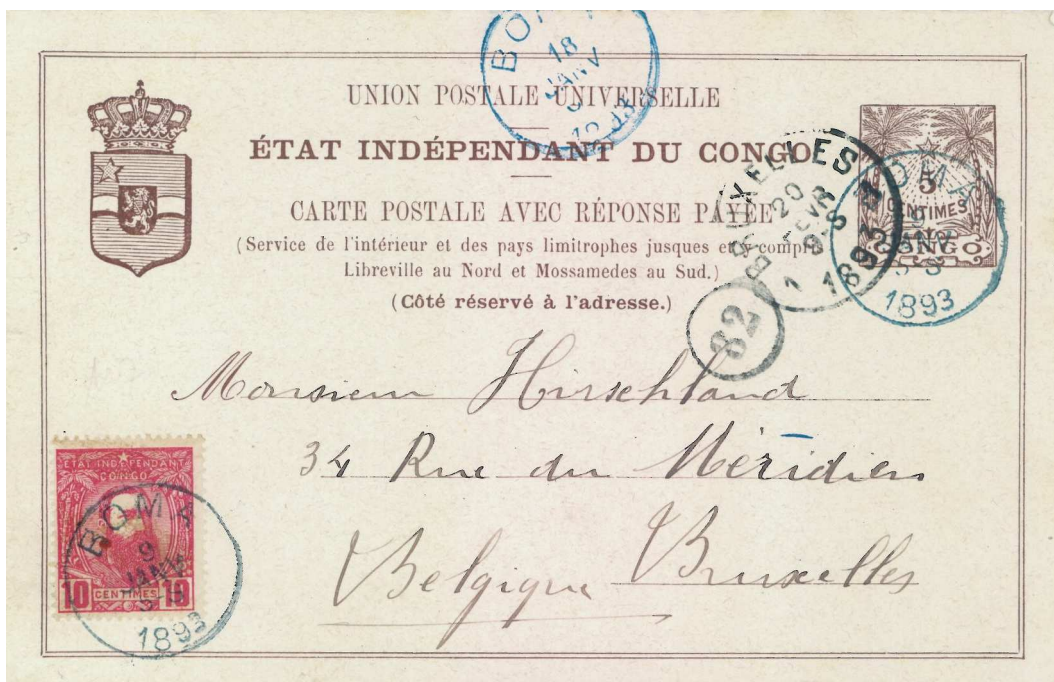 UNION POSTALE UNIVERSELLE
ÉTAT INDÉPENDANT DU CONGO
CARTE POSTALE AVEC RÉPONSE PAYÉE
(Service de l'intérieur et des pays limitrophes jusques et y compris
Libreville au Nord et Mossamedes au Sud.)
(Côté réservé à l'adresse.)
18
JANV
BRUXELLES
20
1893
82
5
CENTIMES
CONGO
BOMA
JANV
1893
Monsieur Hirschland
34 Rue du Méridien
Belgique Bruxelles
ÉTAT INDÉPENDANT
CONGO
10 CENTIMES 10
BOMA
9
JANV
1893